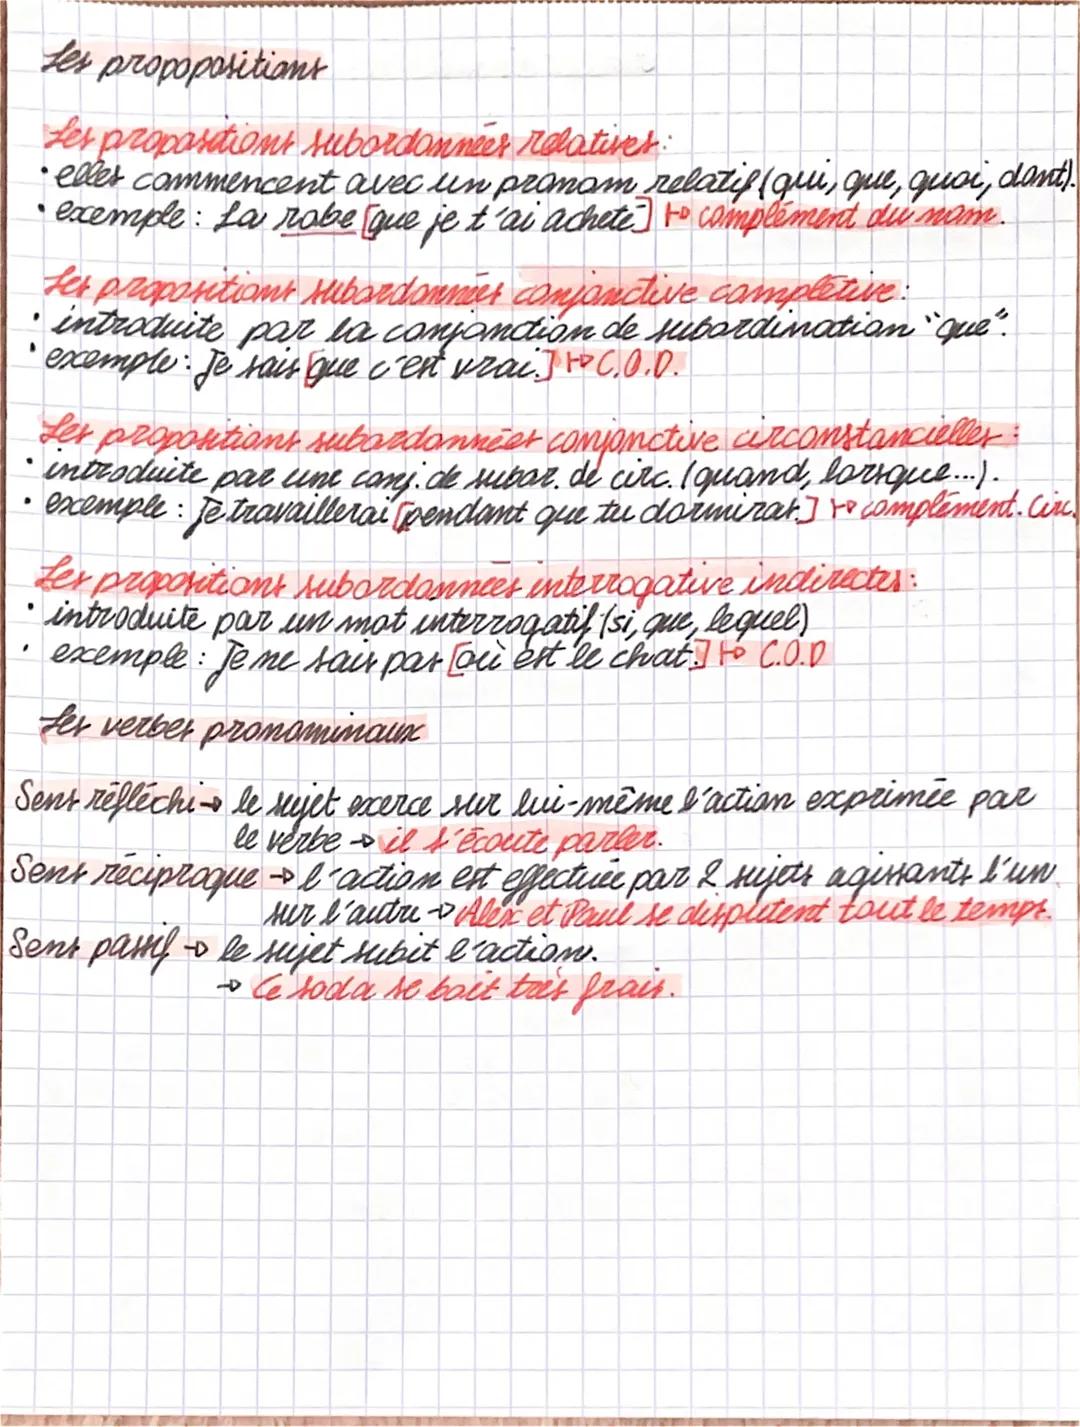 Les propopositions
Les propositions subordonnées relatives :
• elles commencent avec un pronom relatif (qui, que, quoi, dont).
• exemple : La robe [que je t'ai acheté] ↦ complément du nom.
Les propositions subordonnées conjonctive complétive :
• introduite par la conjonction de subordination "que".
• exemple : Je sais [que c'est vrai.] ↦ C.O.D.
Les propositions subordonnées conjonctive circonstancielles :
• introduite par une conj. de subor. de circ. (quand, lorsque...).
• exemple : Je travaillerai [pendant que tu dormiras.] ↦ complément. Circ.
Les propositions subordonnées interrogative indirectes :
• introduite par un mot interrogatif (si, que, lequel)
• exemple : Je ne sais pas [où est le chat.] ↦ C.O.D
Les verbes pronominaux
Sens réfléchi → le sujet exerce sur lui-même l'action exprimée par
le verbe → il s'écoute parler.
Sens réciproque → l'action est effectuée par 2 sujets agissants l'un
sur l'autre → Alex et Paul se disputent tout le temps.
Sens passif → le sujet subit l'action.
→ Ce soda se boit très frais.